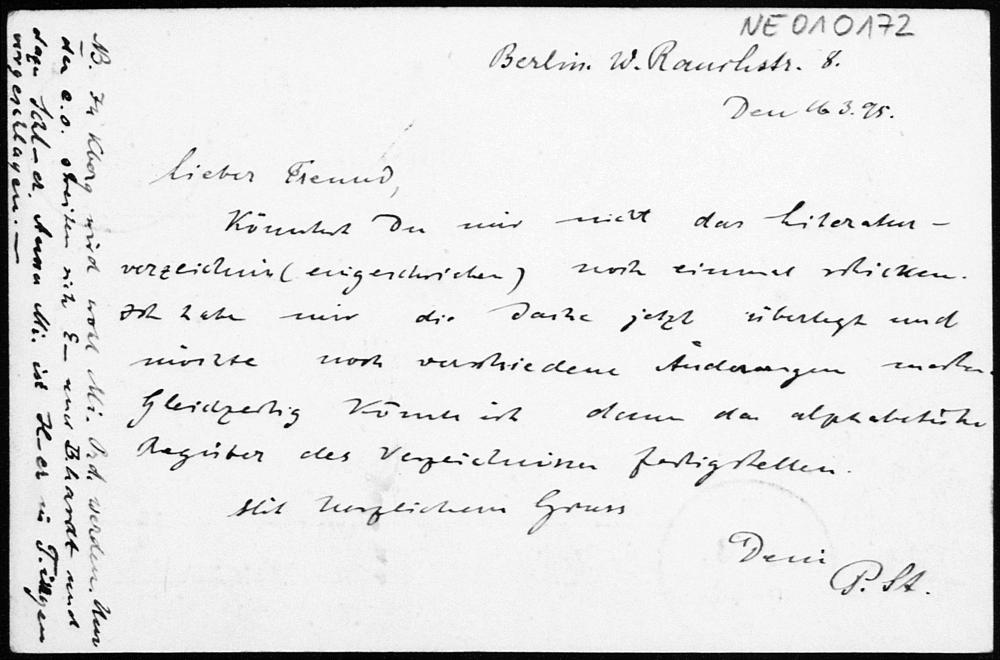 NE010172
Berlin. W. Rauchstr. 8.
Den 16 3. 95.
Lieber Freund,
Könntest Du mir nicht das Literatur-
verzeichnis (eingeschrieben) noch einmal schicken.
Ich habe mir die Sache jetzt überlegt und
möchte noch verschiedene Änderungen machen.
Gleichzeitig könnte ich dann das alphabetische
Register des Verzeichnisses fertigstellen.
Mit herzlichem Gruss
Dein
P. St.
NB. In Kberg wird wohl Mi. Ord. werden. Um
den e.o. streiten sich E— und Bhardt und
dazu Sch—er. Ausser Mi. ist H—er in T.
vorgeschlagen.—